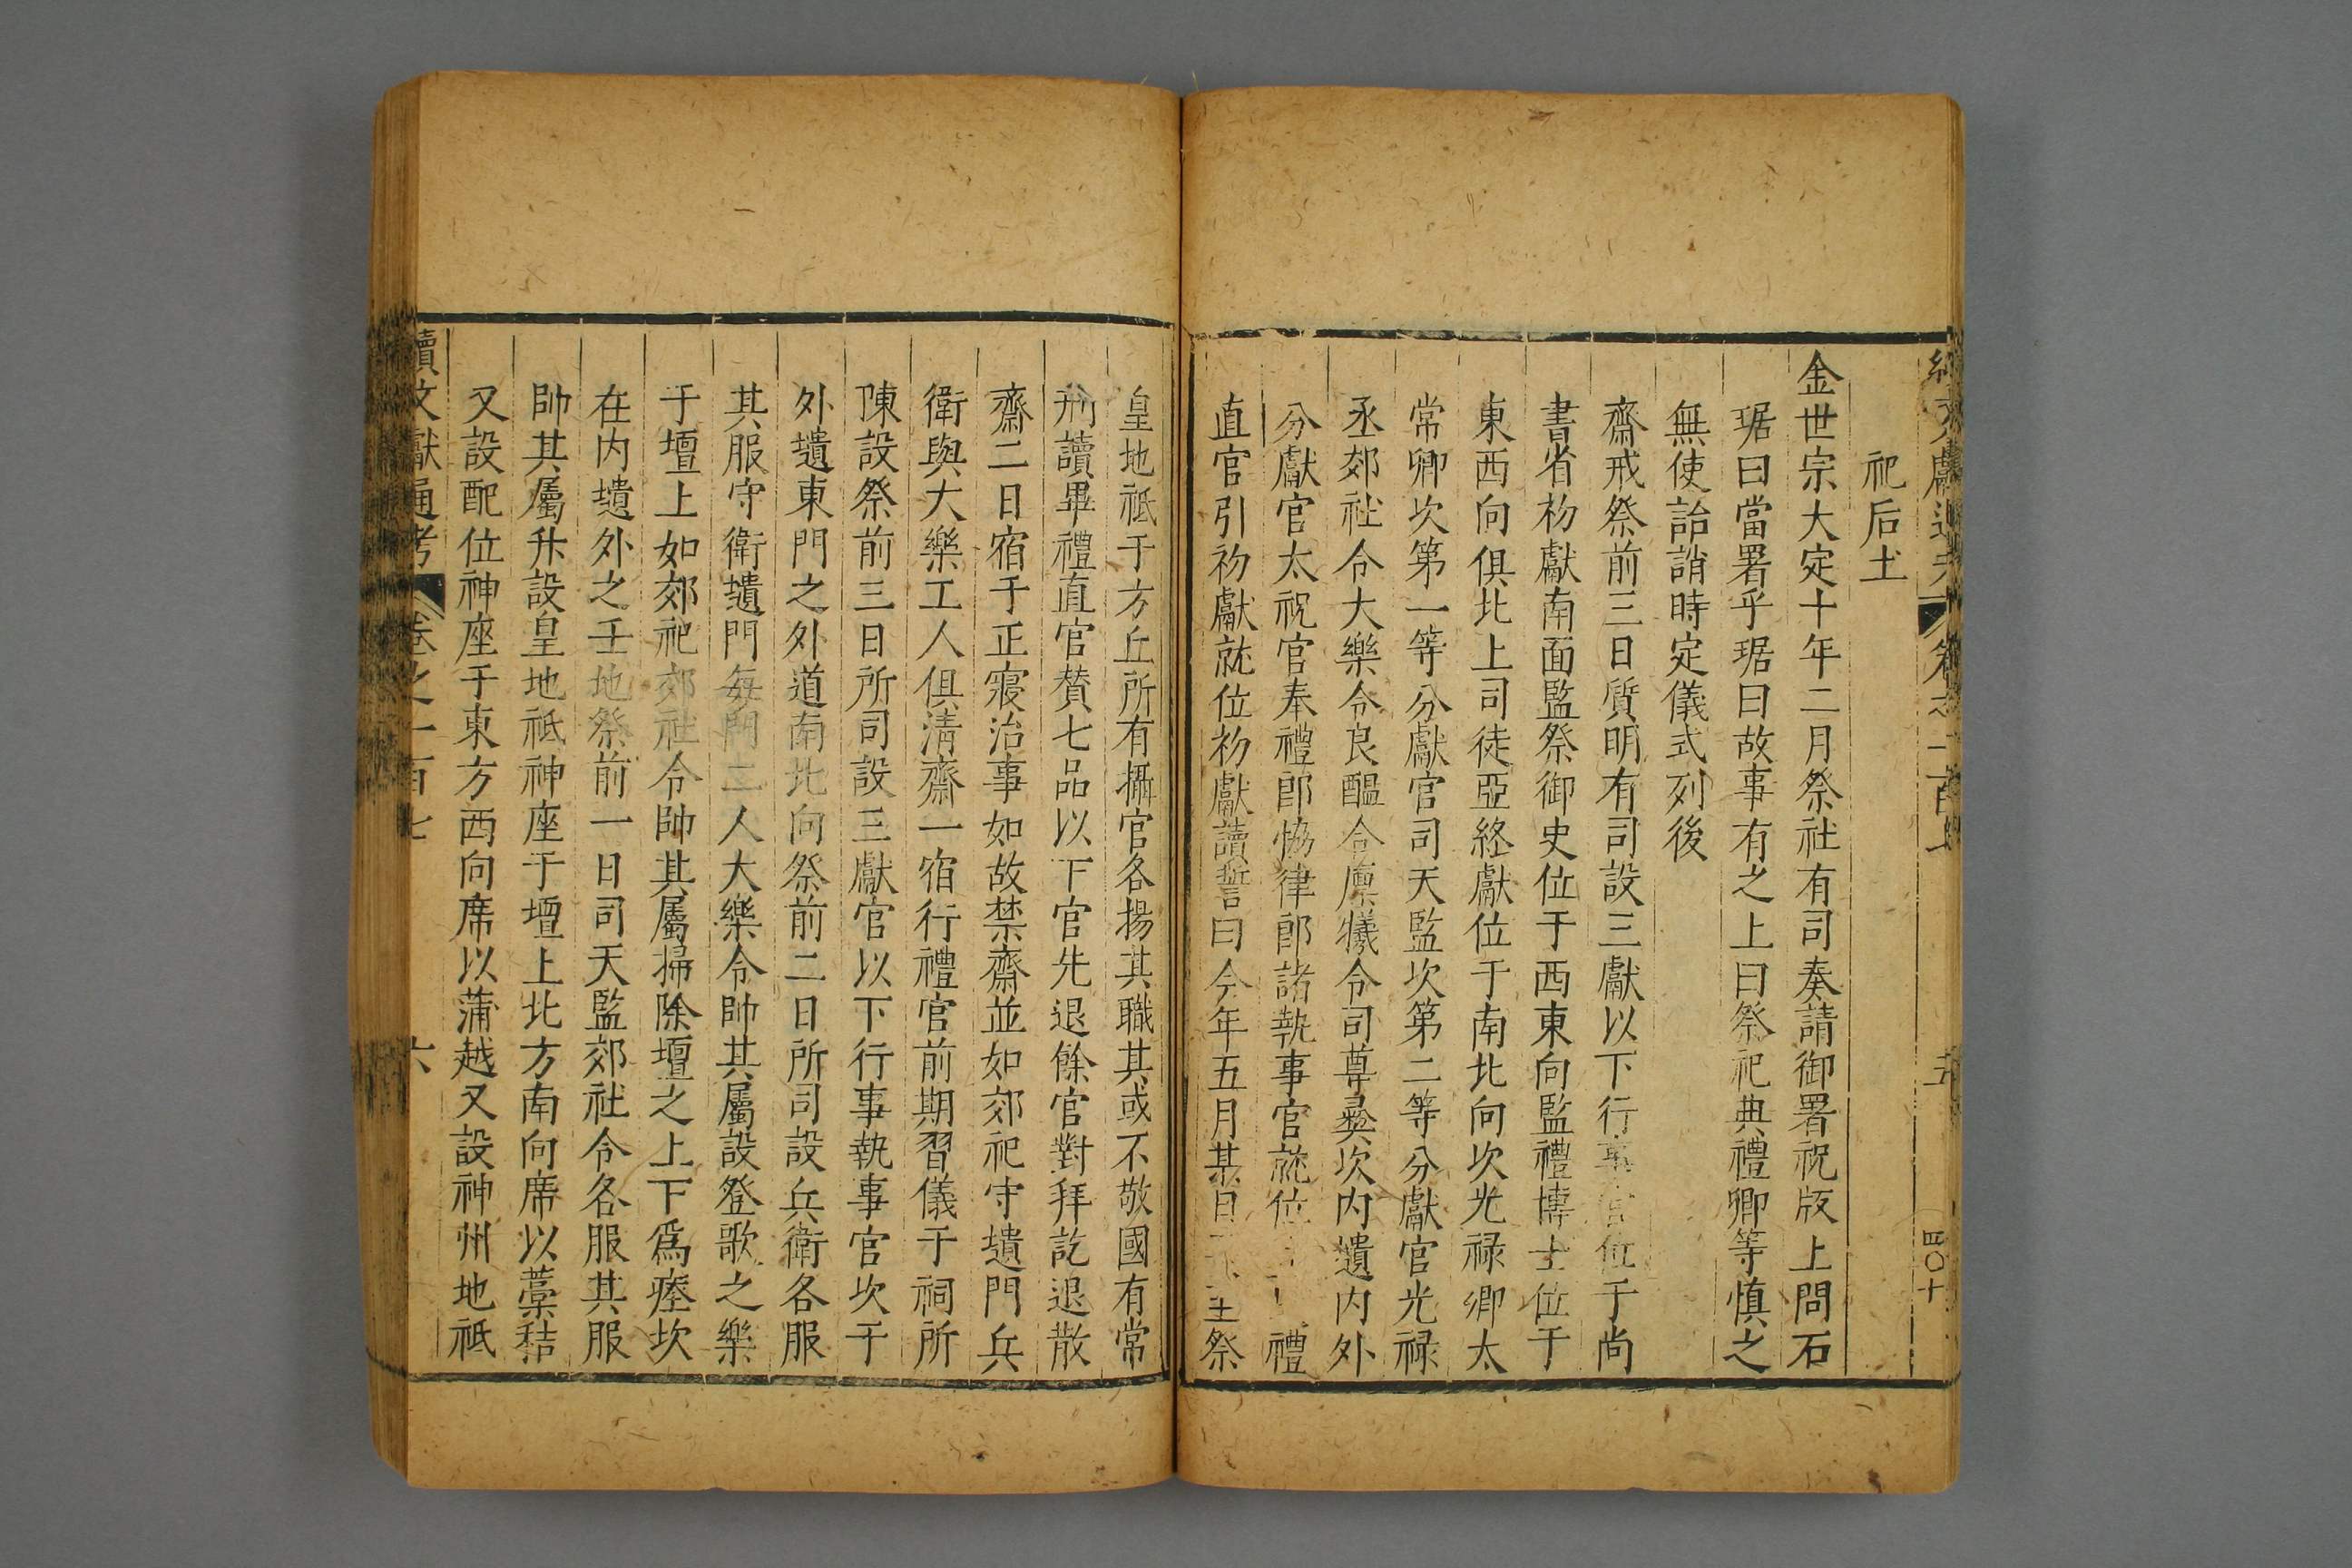 續文獻通考
卷之一百七
五
四〇十
祀后土
金世宗大定十年二月祭社有司奏請御署祝版上問石
琚曰當署乎琚曰故事有之上曰祭祀典禮卿等慎之
無使詒誚時定儀式列後
齋戒祭前三日質明有司設三獻以下行事官位于尚
書省初獻南面監祭御史位于西東向監禮博士位于
東西向俱北上司徒亞終獻位于南北向次光禄卿太
常卿次第一等分獻官司天監次第二等分獻官光禄
丞郊社令大樂令良醞令廩犧令司尊彞次内壝内外
分獻官太祝官奉禮郎恊律郎諸執事官就位禮
直官引初獻就位初獻讀誓曰今年五月某日祭
皇地祗于方丘所有攝官各揚其職其或不敬國有常
刑讀畢禮直官賛七品以下官先退餘官對拜訖退散
齋二日宿于正寢治事如故禁齋並如郊祀守壝門兵
衛與大樂工人俱清齋一宿行禮官前期習儀于祠所
陳設祭前三日所司設三獻官以下行事執事官次于
外壝東門之外道南北向祭前二日所司設兵衛各服
其服守衛壝門每門二人大樂令帥其屬設登歌之樂
于壇上如郊祀郊社令帥其屬掃除壇之上下爲瘞坎
在内壝外之壬地祭前一日司天監郊社令各服其服
帥其屬升設皇地祗神座于壇上北方南向席以藁秸
又設配位神座于東方西向席以蒲越又設神州地祗
續文獻通考
卷之一百七
六